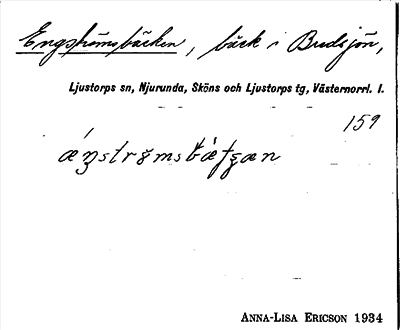 Engströmsbäcken, bäck i Brudsjön,
Ljustorps sn, Njurunda, Sköns och Ljustorps tg, Västernorrl. l.
159
ANNA-LISA ERICSON 1934